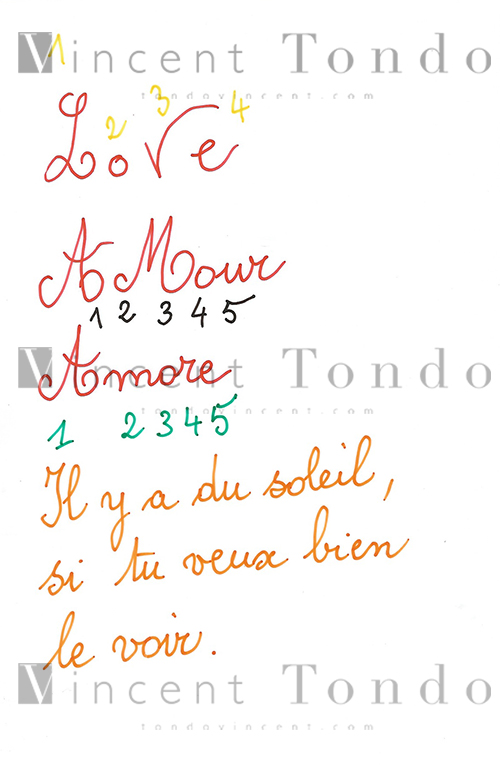 Vincent Tondo
tondovincent.com
1 2 3 4
LoVe
AMour
1 2 3 4 5
Vincent Tondo
Amore
tondovincent.com
1 2 3 4 5
Il y a du soleil,
si tu veux bien
le voir.
Vincent Tondo
tondovincent.com